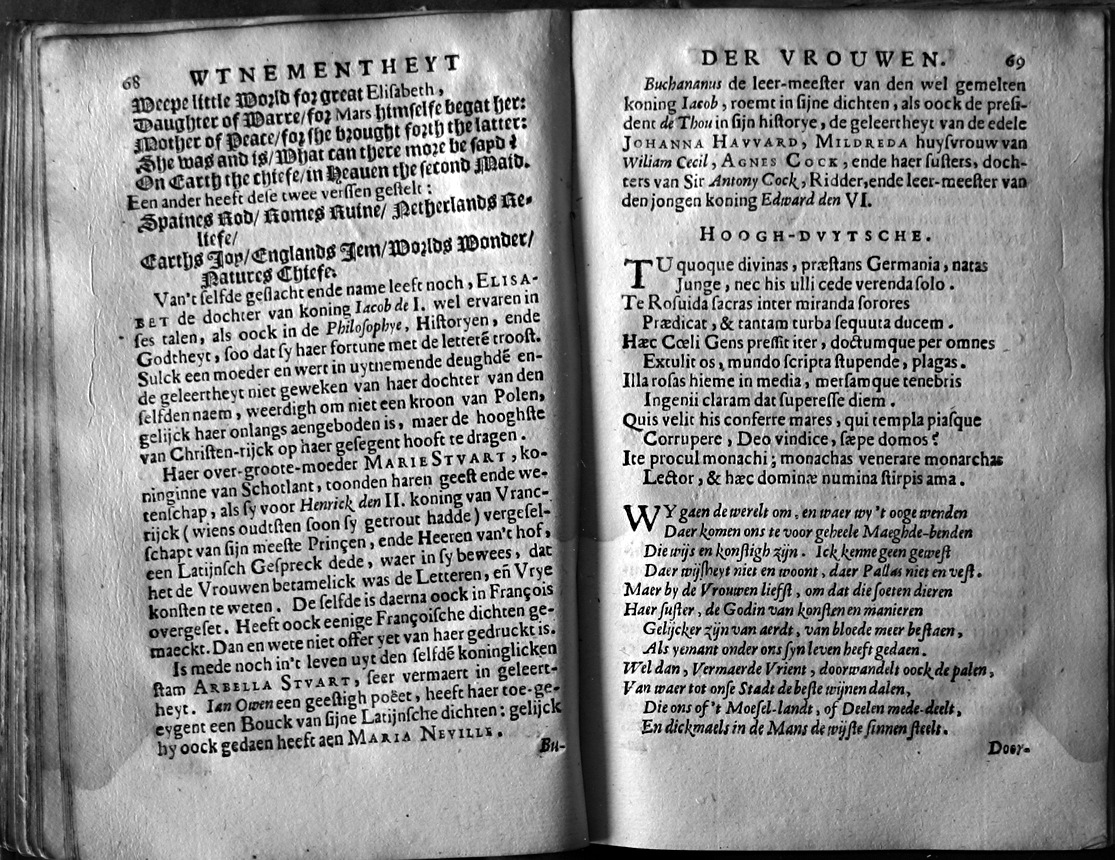 68 WTNEMENTHEYT
Weepe little World for great Elisabeth,
Daughter of Warre/for Mars himselfe begat her:
Mother of Peace/for she brought forth the latter:
She was and is/What can there more be sayd?
On Earth the chiefe/in Heauen the second Maid.
Een ander heeft dese twee verssen gestelt:
Spaines Rod/ Romes Ruine/ Netherlands Re-
liefe/
Earths Joy/Englands Jem/Worlds Wonder/
Natures Chiefe.
Van't selfde geslacht ende name leeft noch, ELISA-
BET de dochter van koning Iacob de I. wel ervaren in
ses talen, als oock in de Philosophye, Historyen, ende
Godtheyt, soo dat sy haer fortune met de letterē troost.
Sulck een moeder en wert in uytnemende deughdē en-
de geleertheyt niet geweken van haer dochter van den
selfden naem, weerdigh om niet een kroon van Polen,
gelijck haer onlangs aengeboden is, maer de hooghste
van Christen-rijck op haer gesegent hooft te dragen.
Haer over-groote-moeder MARIE STVART, ko-
ninginne van Schotlant, toonden haren geest ende we-
tenschap, als sy voor Henrick den II. koning van Vranc-
rijck (wiens oudtsten soon sy getrout hadde) vergesel-
schapt van sijn meeste Prinçen, ende Heeren van't hof,
een Latijnsch Gespreck dede, waer in sy bewees, dat
het de Vrouwen betamelick was de Letteren, eñ Vrye
konsten te weten. De selfde is daerna oock in François
overgeset. Heeft oock eenige Françoische dichten ge-
maeckt. Dan en wete niet offer yet van haer gedruckt is.
Is mede noch in't leven uyt den selfdē koninglicken
stam ARBELLA STVART, seer vermaert in geleert-
heyt. Ian Owen een geestigh poëet, heeft haer toe-ge-
eygent een Bouck van sijne Latijnsche dichten: gelijck
hy oock gedaen heeft aen MARIA NEVILLE.
Bu-
DER VROUWEN. 69
Buchananus de leer-meester van den wel gemelten
koning Iacob, roemt in sijne dichten, als oock de presi-
dent de Thou in sijn historye, de geleertheyt van de edele
JOHANNA HAVVARD, MILDREDA huysvrouw van
Wiliam Cecil, AGNES COCK, ende haer susters, doch-
ters van Sir Antony Cock, Ridder, ende leer-meester van
den jongen koning Edward den VI.
HOOGH-DVYTSCHE.
TU quoque divinas, præstans Germania, natas
Junge, nec his ulli cede verenda solo.
Te Rosuida sacras inter miranda sorores
Prædicat, & tantam turba sequuta ducem.
Hæc Cœli Gens pressit iter, doctumque per omnes
Extulit os, mundo scripta stupende, plagas.
Illa rosas hieme in media, mersamque tenebris
Ingenii claram dat superesse diem.
Quis velit his conferre mares, qui templa piasque
Corrupere, Deo vindice, sæpe domos?
Ite procul monachi; monachas venerare monarchas
Lector, & hæc dominæ numina stirpis ama.
WY gaen de werelt om, en waer wy 't ooge wenden
Daer komen ons te voor geheele Maeghde-benden
Die wijs en konstigh zijn. Ick kenne geen gewest
Daer wijsheyt niet en woont, daer Pallas niet en vest.
Maer by de Vrouwen liefst, om dat die soeten dieren
Haer suster, de Godin van konsten en manieren
Gelijcker zijn van aerdt, van bloede meer bestaen,
Als yemant onder ons syn leven heeft gedaen.
Wel dan, Vermaerde Vrient, doorwandelt oock de palen,
Van waer tot onse Stadt de beste wijnen dalen,
Die ons of 't Moesel-landt, of Deelen mede-deelt,
En dickmaels in de Mans de wijste sinnen steelt.
Door-